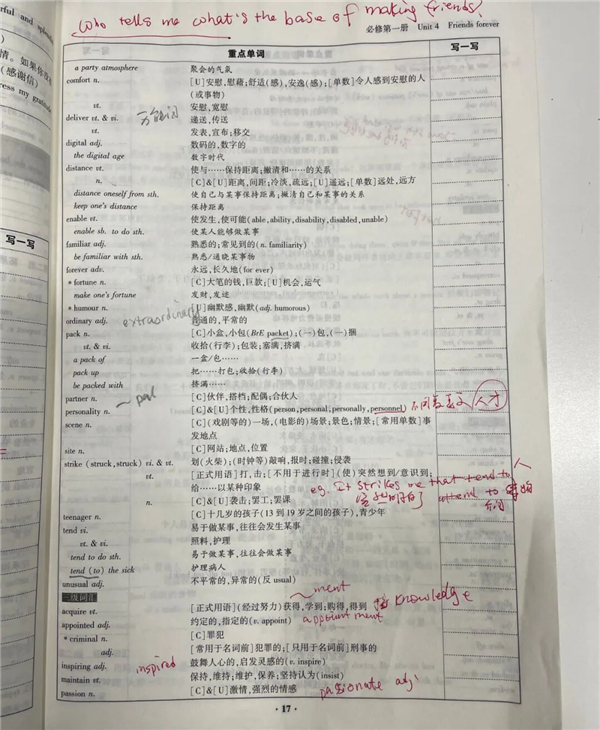 Who tells me what's the base of making friends?
必修第一册 Unit 4 Friends forever
重点单词 写一写
a party atmosphere 聚会的气氛
comfort n. [U]安慰,慰藉;舒适(感),安逸(感);[单数]令人感到安慰的人
(或事物)
vt. 安慰,宽慰
deliver vt. & vi. 递送,传送
vt. 发表,宣布;移交
digital adj. 数码的,数字的
the digital age 数字时代
distance vt. 使与……保持距离;撇清和……的关系
n. [C]&[U]距离,间距;冷淡,疏远;[U]遥远;[单数]远处,远方
distance oneself from sth. 使自己与某事保持距离;撇清自己和某事的关系
keep one's distance 保持距离
enable vt. 使发生,使可能(able,ability,disability,disabled,unable)
enable sb. to do sth. 使某人能够做某事
familiar adj. 熟悉的;常见到的(n. familiarity)
be familiar with sth. 熟悉/通晓某事物
forever adv. 永远,长久地(for ever)
*fortune n. [C]大笔的钱,巨款;[U]机会,运气
make one's fortune 发财,发迹
*humour n. [U]幽默感,幽默(adj. humorous)
ordinary adj. extraordinary 普通的,平常的
pack n. [C]小盒,小包(BrE packet);(一)包,(一)捆
vt. & vi. 收拾(行李);包装;塞满,挤满
a pack of 一盒/包……
pack up 把……打包;收拾(行李)
be packed with 挤满……
partner n. [C]伙伴,搭档;配偶;合伙人
~pal
personality n. [C]&[U]个性,性格(person,personal,personally,personnel) 人才
scene n. [C](戏剧等的)一场,(电影的)场景;景色;情景;[常用单数]事
发地点
site n. [C]网站;地点,位置
strike (struck,struck) vi. & vt. 划(火柴);(时钟等)敲响,报时;碰撞;侵袭
vt. [正式用语]打,击;[不用于进行时](使)突然想到/意识到;
给……以某种印象 eg. It strikes me that tend to
n. [C]&[U]袭击;罢工;罢课
teenager n. [C]十几岁的孩子(13到19岁之间的孩子),青少年
tend vi. 易于做某事,往往会发生某事
vt. & vi. 照料,护理
tend to do sth. 易于做某事,往往会做某事
tend (to) the sick 护理病人
unusual adj. 不平常的,异常的(反 usual)
二级词汇 ~ment
acquire vt. [正式用语](经过努力)获得,学到;购得,得到 knowledge
appointed adj. 约定的,指定的(v. appoint) appointment
*criminal n. [C]罪犯
adj. [常用于名词前]犯罪的;[只用于名词前]刑事的
inspiring adj. inspired 鼓舞人心的,启发灵感的(v. inspire)
maintain vt. 保持,维持;维护,保养;坚持认为(insist)
passion n. [C]&[U]激情,强烈的情感 passionate adj
·17·
写一写